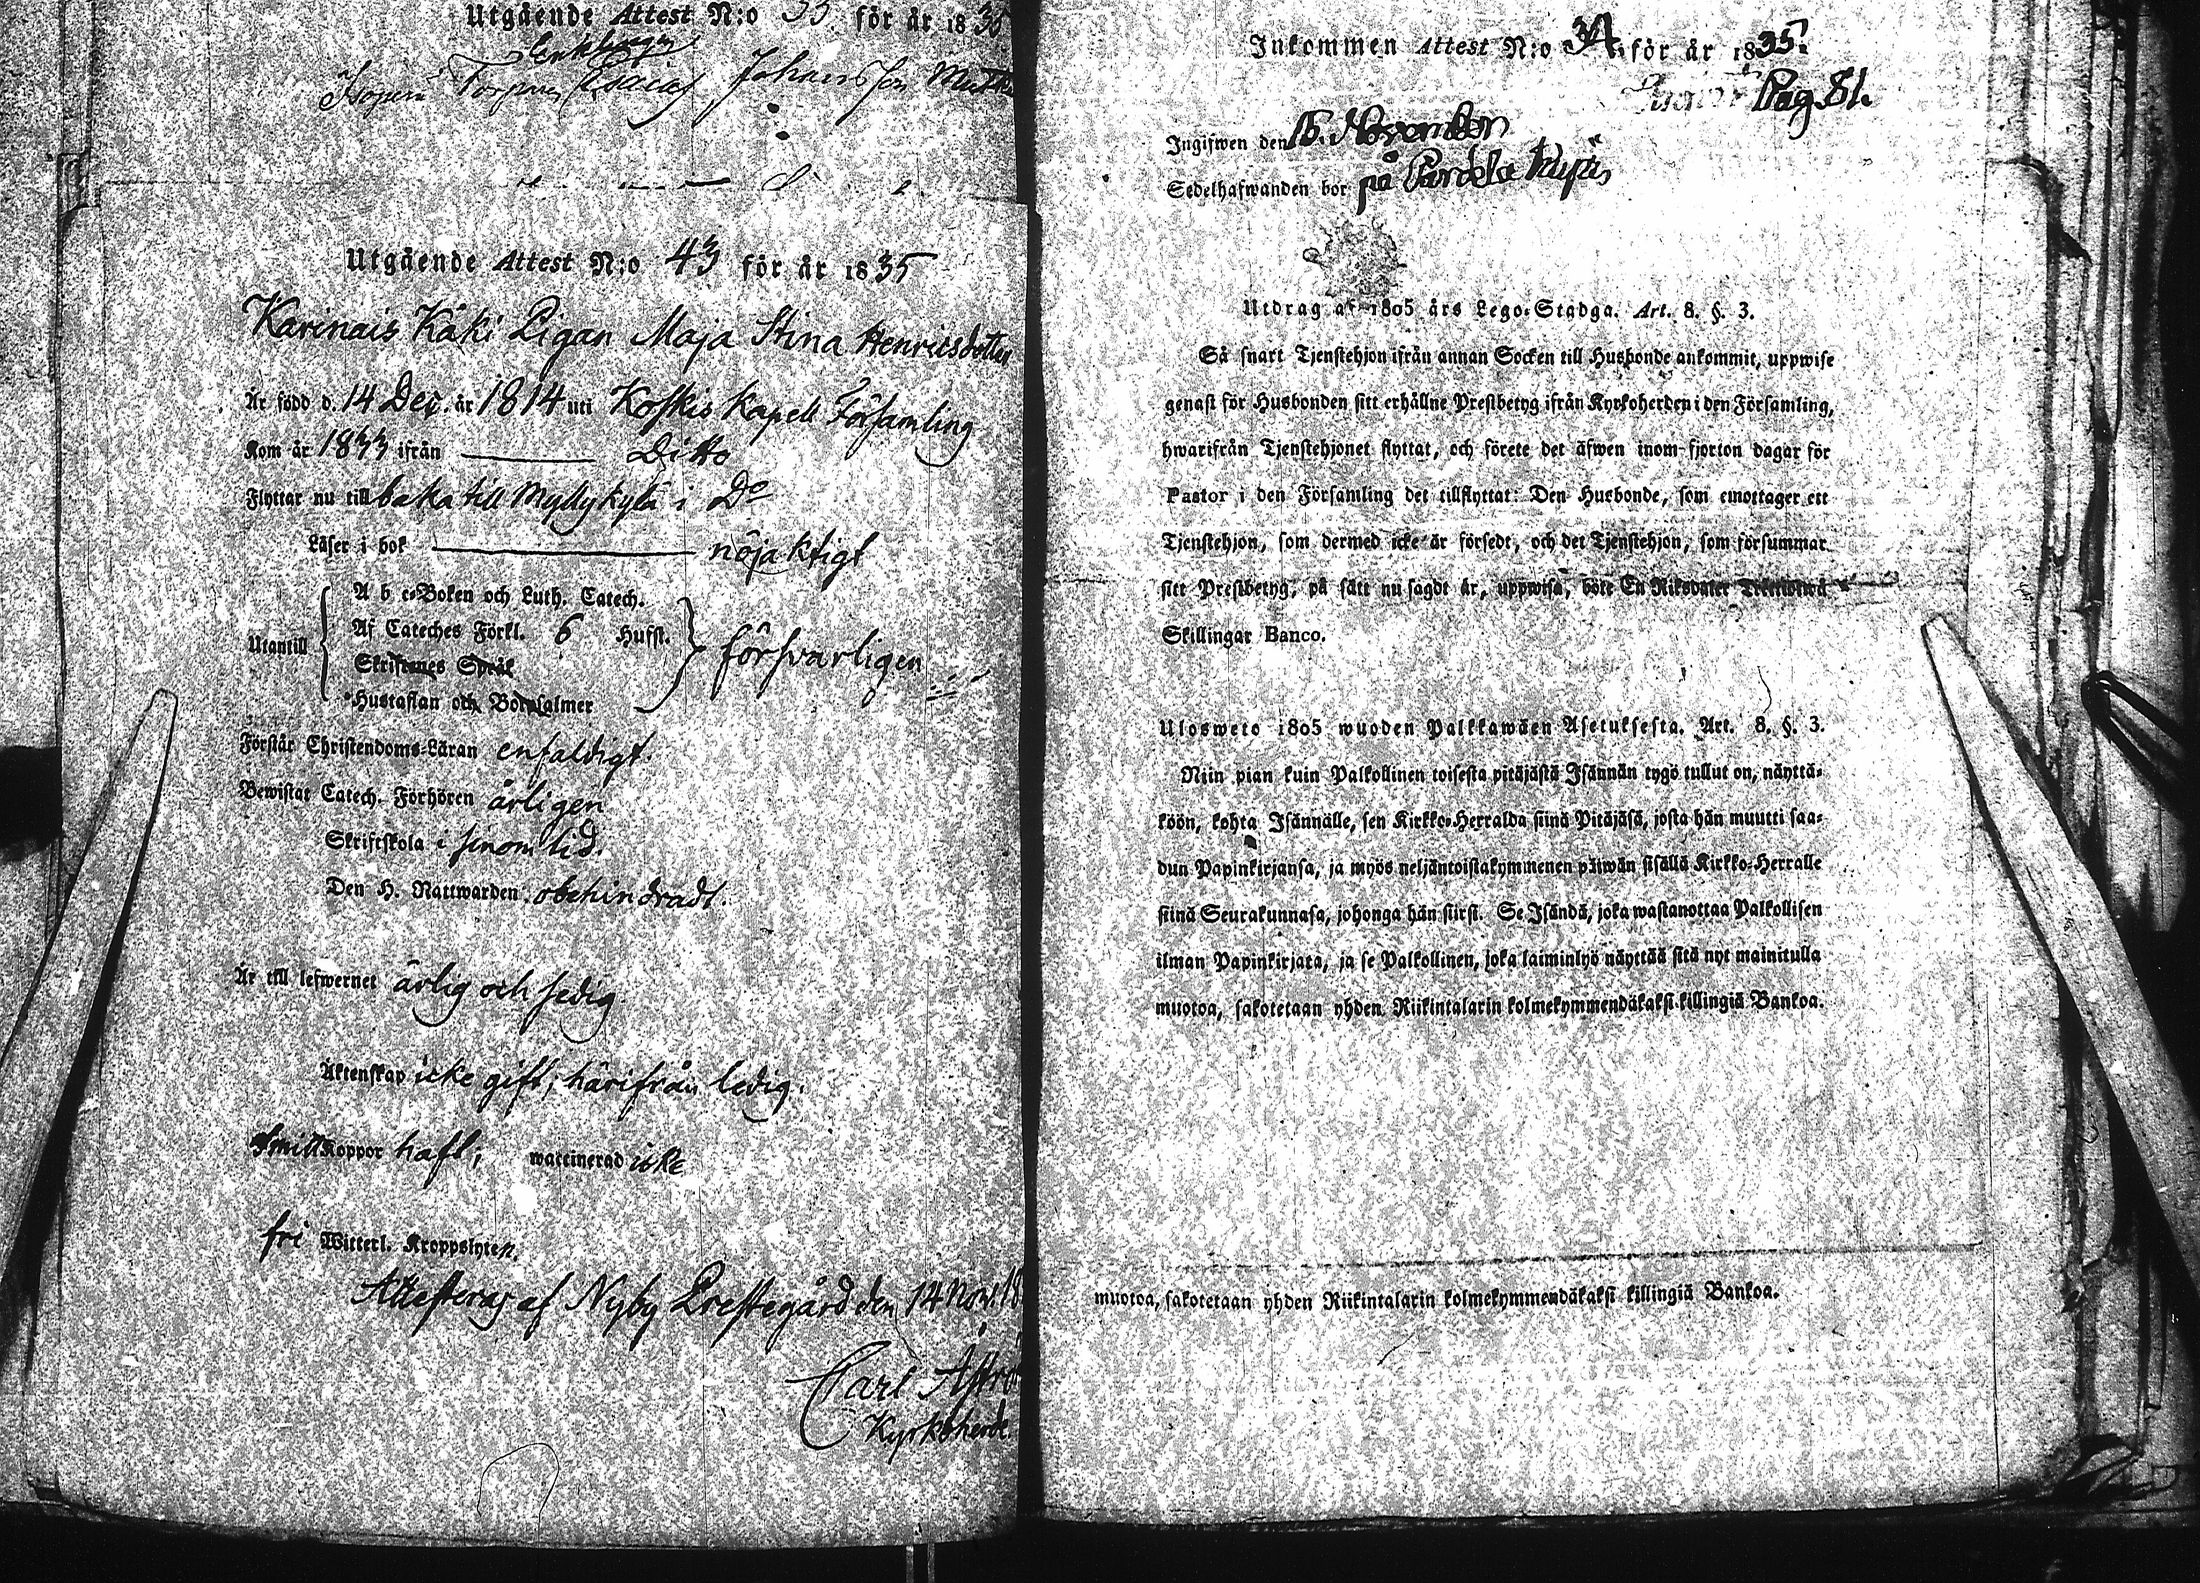 Utgående Attest N:o 33 för år 1835
Enklingen
Torparen Esaias Johansson
Utgående Attest N:o 43 för år 1835
Karinais Käki Pigan Maja Stina Henricsdotter
Är född d. 14 Dec. år 1814 uti Koskis Kapell Församling
Kom år 1833 ifrån Ditto
Flyttar nu till baka till Myllykylä i Do
Läser i bok nöjaktigt
Utantill
A b c-Boken och Luth. Catech.
Af Cateches Förkl. 6 Hufst.
Skriftenes Språk
Hustaflan och Botpsalmer
försvarligen
Förstår Christendoms-Läran enfaldigt.
Bewistat Catech. Förhören årligen
Skriftskola i sinom tid.
Den H. Nattwarden obehindradt.
Är till lefwernet ärlig och sedig.
Äktenskap icke gift, härifrån ledig.
Smittkoppor haft, waccinerad icke
fri Witterl. Kroppslyten.
Attesteras af Nyby Prestegård den 14 Nov. 18
Carl Astro
Kyrkoherde.
Inkommen Attest N:o 34. för år 1835.
Pag. 81.
Ingifwen den 15. November
Sedelhafwanden bor på
Utdrag af 1805 års Lego-Stadga. Art. 8. §. 3.
Så snart Tjenstehjon ifrån annan Socken till Husbonde ankommit, uppwise
genast för Husbonden sitt erhållne Prestbetyg ifrån Kyrkoherden i den Församling,
hwarifrån Tjenstehjonet flyttat, och förete det äfwen inom fjorton dagar för
Pastor i den Församling det tillflyttat: Den Husbonde, som emottager ett
Tjenstehjon, som dermed icke är försedt, och det Tjenstehjon, som försummar
sitt Prestbetyg, på sätt nu sagdt är, uppwisa, böte En Riksdaler Trettiotwå
Skillingar Banco.
Ulosweto 1805 wuoden Palkkawäen Asetuksesta. Art. 8. §. 3.
Niin pian kuin Palkollinen toisesta pitäjästä Isännän tygö tullut on, näyttä-
köön, kohta Isännälle, sen Kirkko-Herralda siinä Pitäjäsä, josta hän muutti saa-
dun Papinkirjansa, ja myös neljäntoistakymmenen päiwän sisällä Kirkko-Herralle
siinä Seurakunnasa, johonga hän siirsi. Se Isändä, joka wastanottaa Palkollisen
ilman Papinkirjata, ja se Palkollinen, joka laiminlyö näyttää sitä nyt mainitulla
muotoa, sakotetaan yhden Riikintalarin kolmekymmendäkaksi killingiä Bankoa.
muotoa, sakotetaan yhden Riikintalarin kolmekymmendäkaksi killingiä Bankoa.